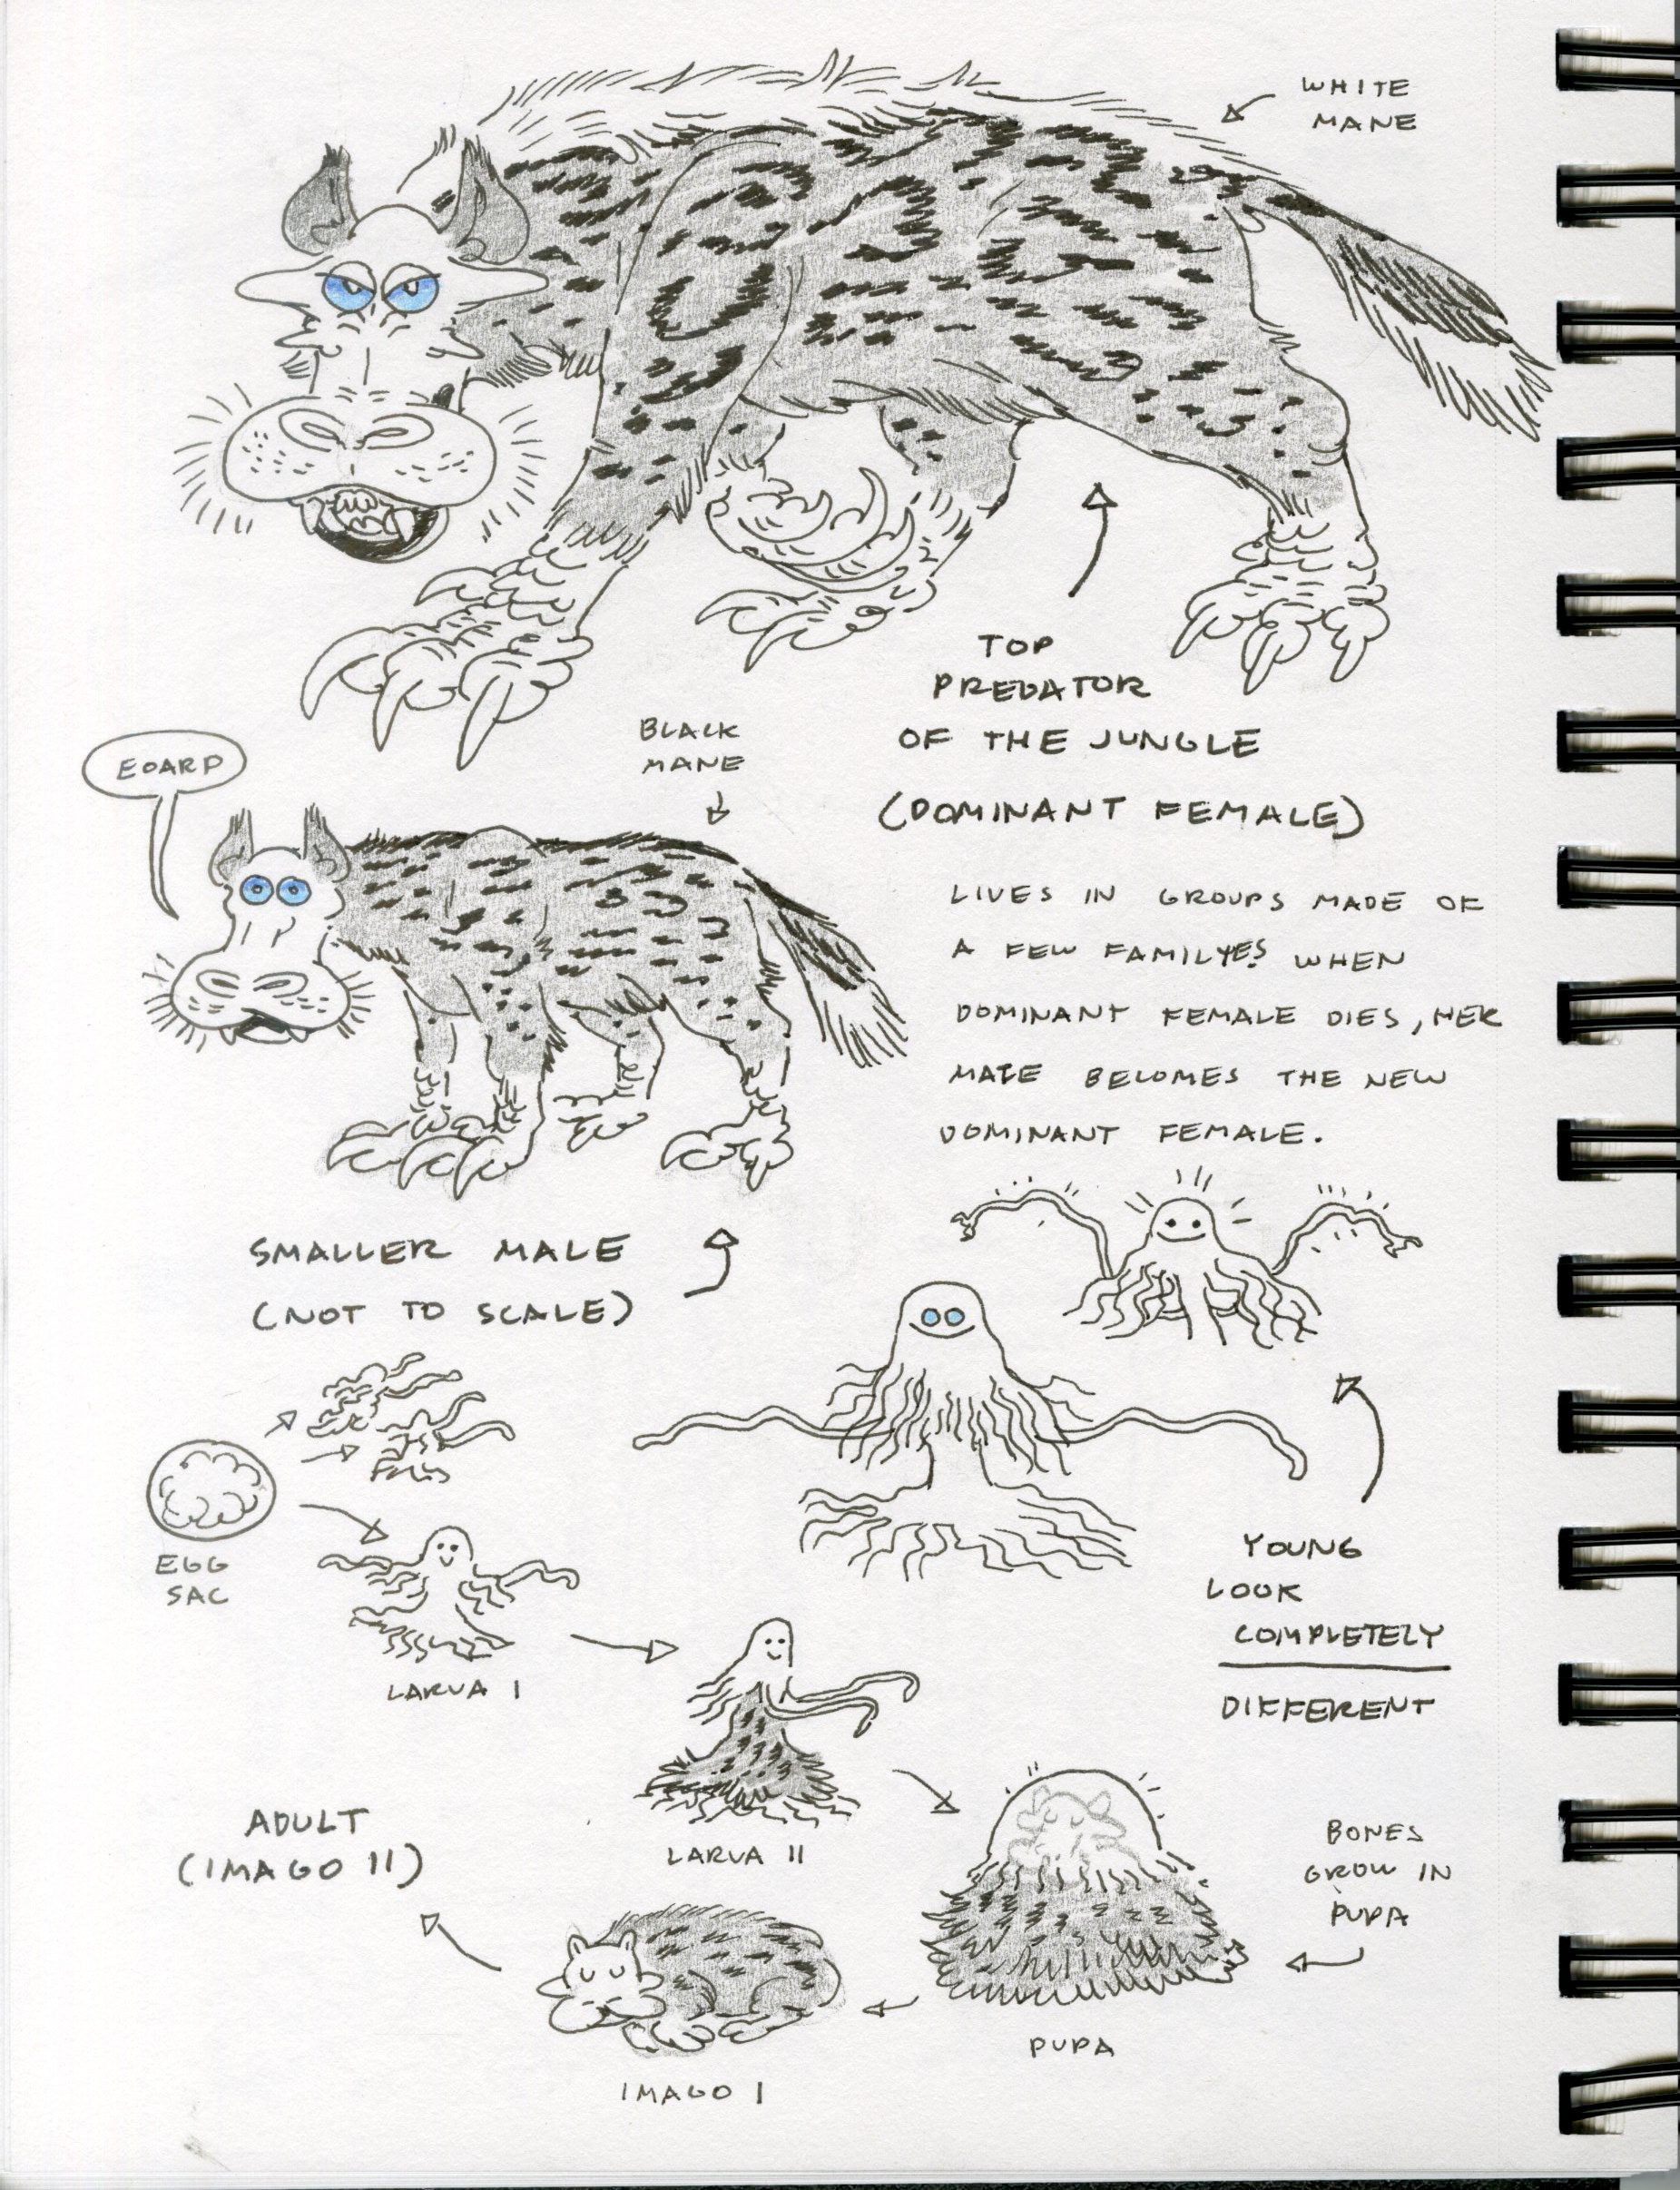 WHITE
MANE
TOP
PREDATOR
OF THE JUNGLE
(DOMINANT FEMALE)
BLACK
MANE
EOARP
LIVES IN GROUPS MADE OF
A FEW FAMILYES WHEN
DOMINANT FEMALE DIES, HER
MATE BECOMES THE NEW
DOMINANT FEMALE.
SMALLER MALE
(NOT TO SCALE)
YOUNG
LOOK
COMPLETELY
DIFFERENT
EGG
SAC
LARVA I
LARVA II
BONES
GROW IN
PUPA
PUPA
IMAGO I
ADULT
(IMAGO II)